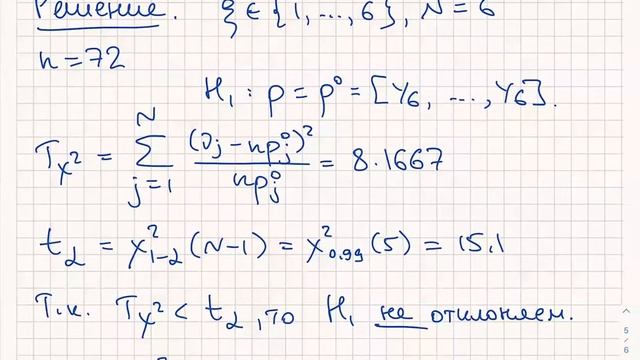 Решение. ξ ∈ {1, ..., 6}, N = 6
n = 72
H₁ : p = p⁰ = [1/6, ..., 1/6].
T_χ² = ∑_{j=1}^{N} (ν_j − np_j⁰)² / np_j⁰ = 8.1667
t_α = χ²_{1−α} (N−1) = χ²_{0.99} (5) = 15.1
Т.к. T_χ² < t_α, то H₁ не отклоняем.
5
6